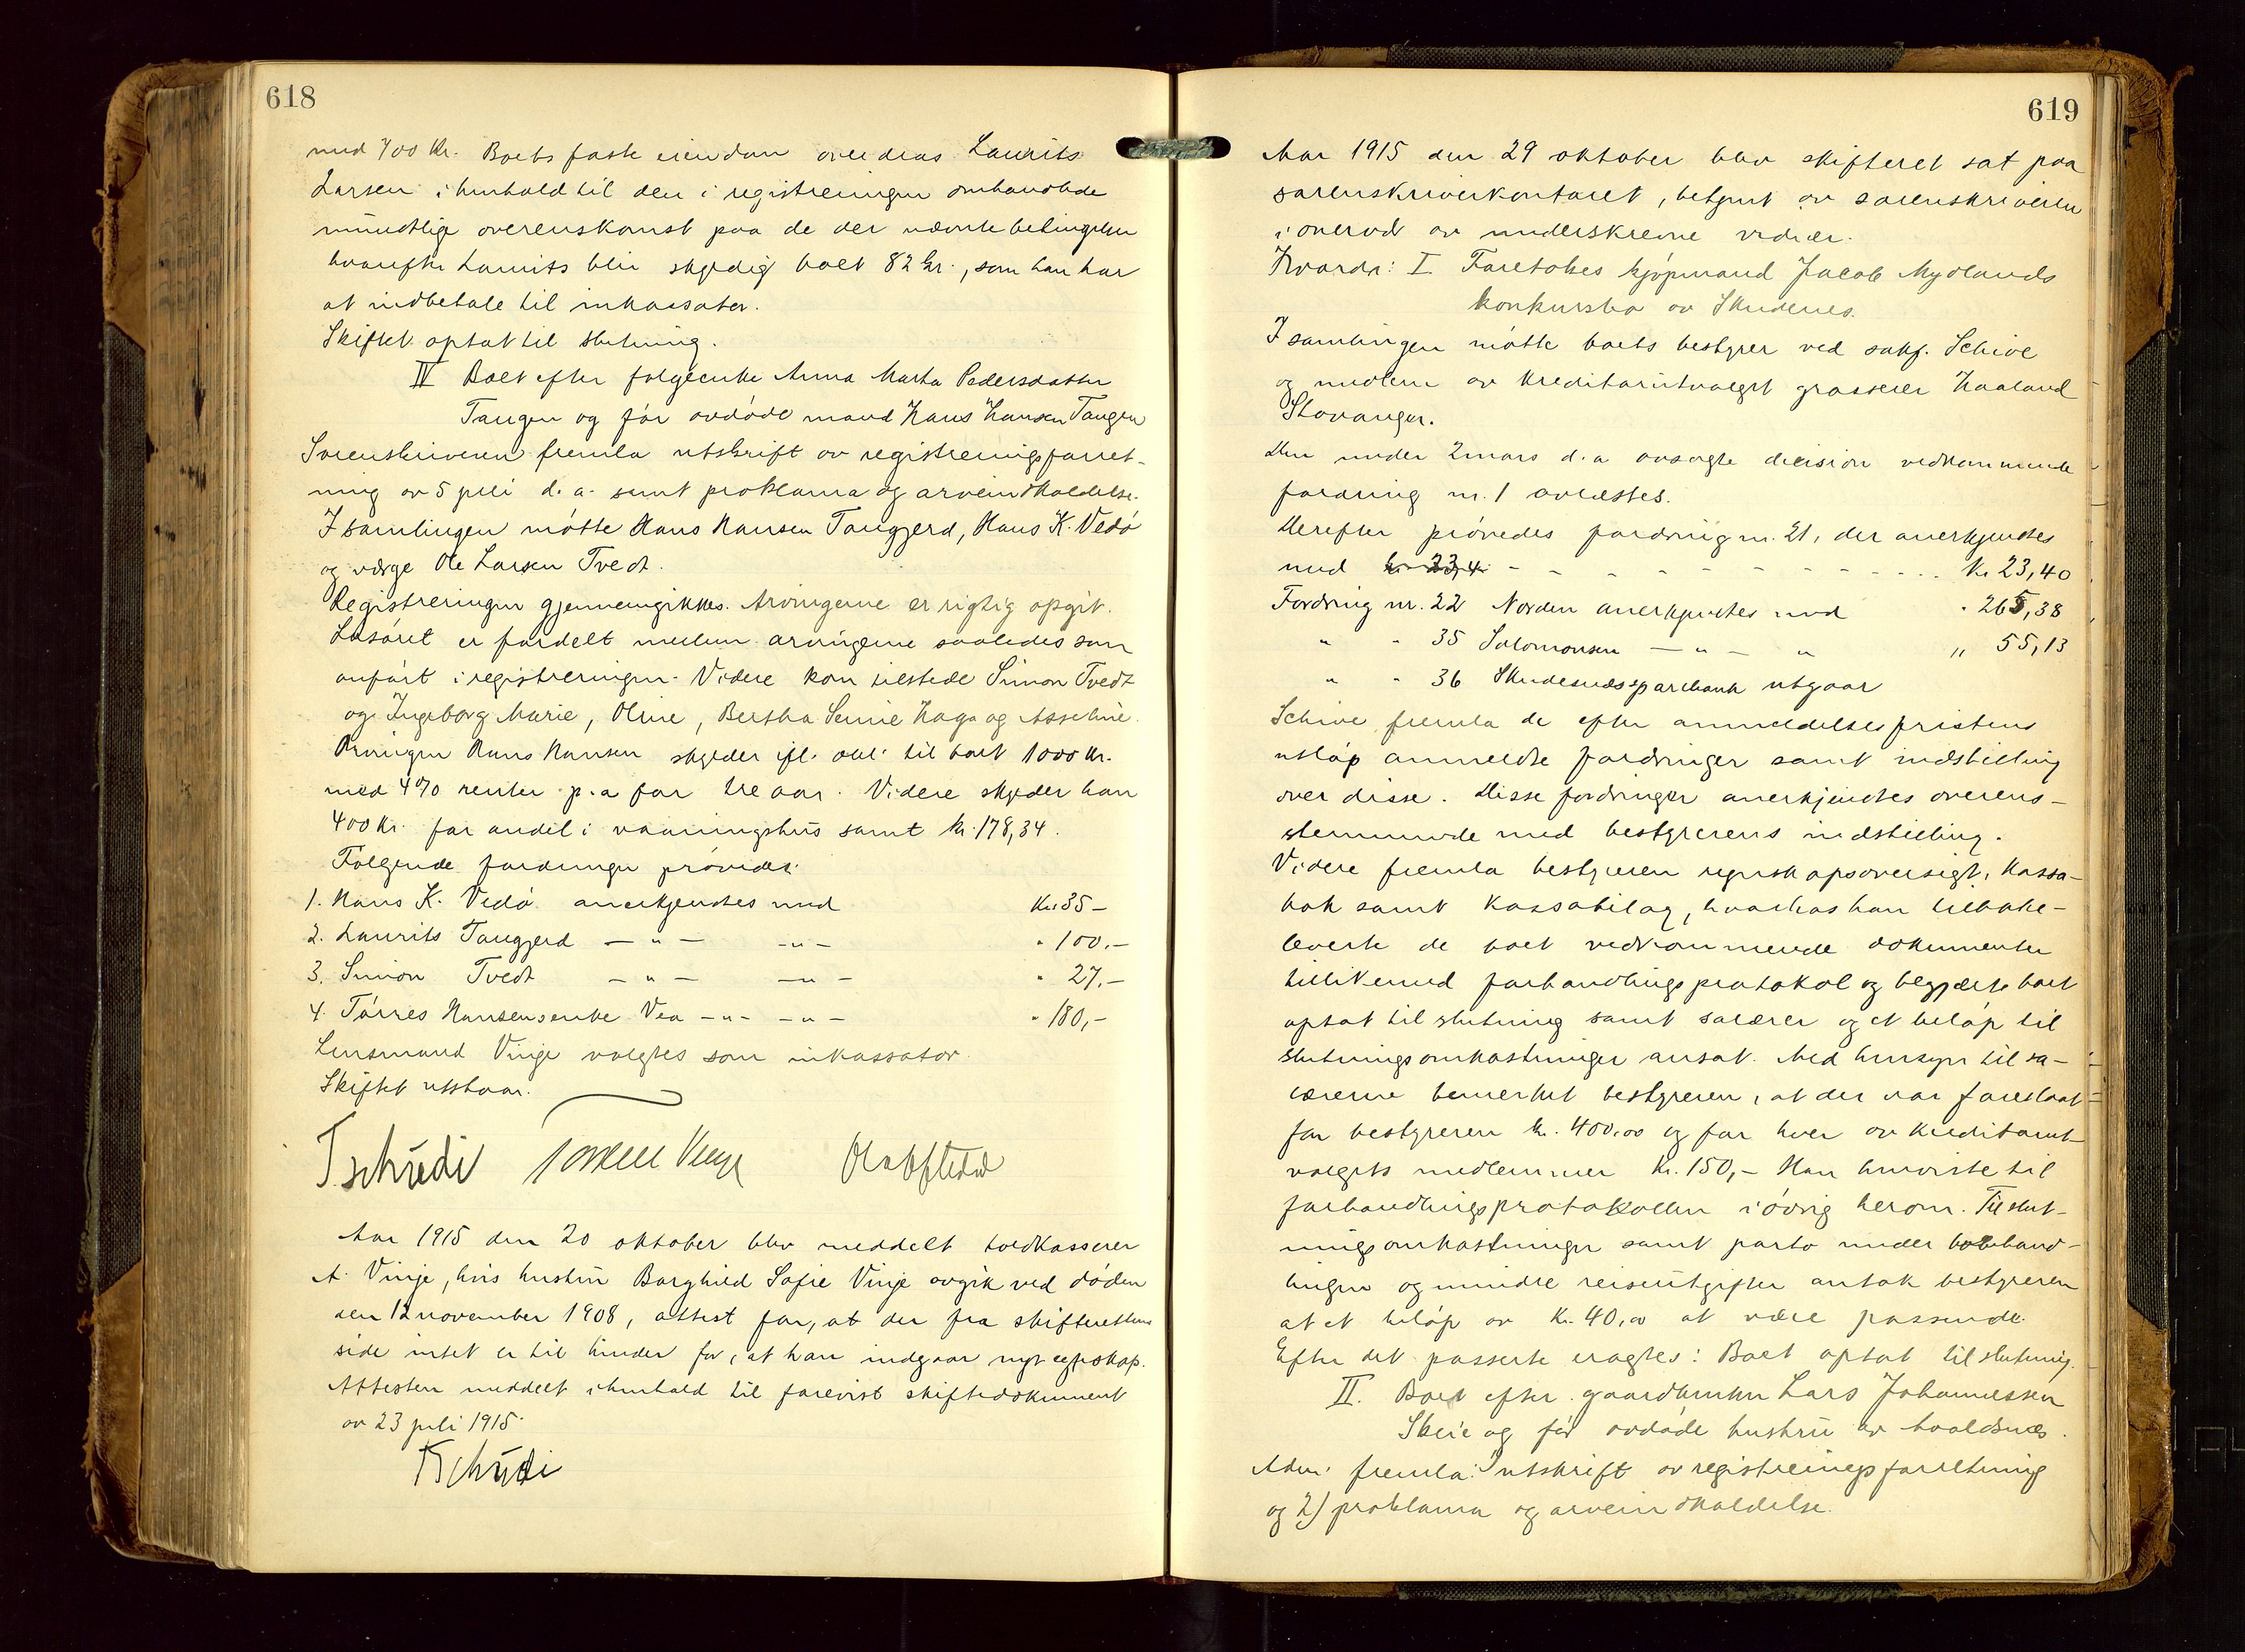 618
med 700 kr. Boets faste eiendom overdras Laurits
Larsen i henhold til den i registreringen omhandlede
mundtlige overenskomst paa de der nævnte betingelser
hvorefter Laurits blir skyldig boet 82 kr., som han har
at indbetale til inkassator.
Skiftet optat til slutning.
IV Boet efter følgeenke Anna Marta Pedersdatter
Tangen og før avdøde mand Hans Hansen Tangen
Sorenskriveren fremla utskrift av registreringsforret-
ning av 5 juli d.a. samt proklama og arveindkaldelse.
I samlingen møtte Hans Hansen Tangjerd, Hans K. Vedø
og værge Ole Larsen Tvedt.
Registreringen gjennemgikkes. Arvingerne er rigtig opgit.
Løsøret er fordelt mellem arvingerne saaledes som
anført i registreringen. Videre kom tilstede Simon Tvedt
og Ingeborg Marie, Oline, Bertha Serine Haga og Asseline.
Arvingen Hans Hansen skylder ifl. obl. til boet 1000 kr.
med 4% renter p.a for tre aar. Videre skylder han
400 kr. for andel i vaaningshus samt kr. 178,34.
Følgende fordringer prøvedes:
1. Hans K. Vedø anerkjendtes med Kr. 35 –
2. Laurits Tangjerd — " — — " — " 100,–
3. Simon Tvedt — " — — " — " 27,–
4. Tørres Hansens enke Vea — " — — " — " 180,–
Lensmand Vinje valgtes som inkassator.
Skiftet utstaar.
Tschudi Vinje
Aar 1915 den 20 oktober blev meddelt toldkasserer
A. Vinje, hvis hustru Borghild Sofie Vinje avgik ved døden
den 12 november 1908, attest for, at der fra skifterettens
side intet er til hinder for, at han indgaar nyt egteskap.
Attesten meddelt i henhold til forevist skiftedokument
av 23 juli 1915.
Tschudi
619
Aar 1915 den 29 oktober blev skifteret sat paa
sorenskriverkontoret, betjent av sorenskriveren
i overvær av underskrevne vidner.
Hvorda: I Foretokes kjøpmand Jacob Mydlands
konkursbo av Skudenes.
I samlingen møtte boets bestyrer ved sakf. Schive
og medlem av kreditorutvalget grosserer Haaland
Stavanger.
Den under 2 mars d.a avsagte decision vedkommende
fordring nr. 1 avlæstes.
Derefter prøvedes fordring nr. 21, der anerkjendtes
med kr. 23,4 - - - - - - - - - - Kr. 23,40
Fordring nr. 22 Norden anerkjendtes med " 265,38
" " 35 Salomonsen — " — " " 55,13
" " 36 Skudesnæs sparebank utgaar
Schive fremla de efter anmeldelsesfristens
utløp anmeldte fordringer samt indstilling
over disse. Disse fordringer anerkjendtes overens-
stemmende med bestyrerens indstilling.
Videre fremla bestyreren regnskapsoversigt, kassa-
bok samt kassabilag, hvorhos han tilbake-
leverte de boet vedkommende dokumenter
tillikemed forhandlingsprotokol og begjærte boet
optat til slutning samt salærer og et beløp til
slutningsomkostninger ansat. Med hensyn til sa-
lærerne bemerket bestyreren, at der var foreslaat
for bestyreren kr. 400,00 og for hver av kreditorut-
valgets medlemmer kr. 150,– Han henviste til
forhandlingsprotokollen i øvrig herom. Til slut-
ningsomkostninger samt porto under bobehand-
lingen og mindre reiseutgifter antok bestyreren
at et beløp av kr. 40,00 at være passende.
Efter det passerte eragtes: Boet optat til slutning.
II. Boet efter gaardbruker Lars Johannessen
Skeie og før avdøde hustru av Avaldsnes.
Adm. fremla: utskrift av registreringsforretning
og 2) proklama og arveindkaldelse.